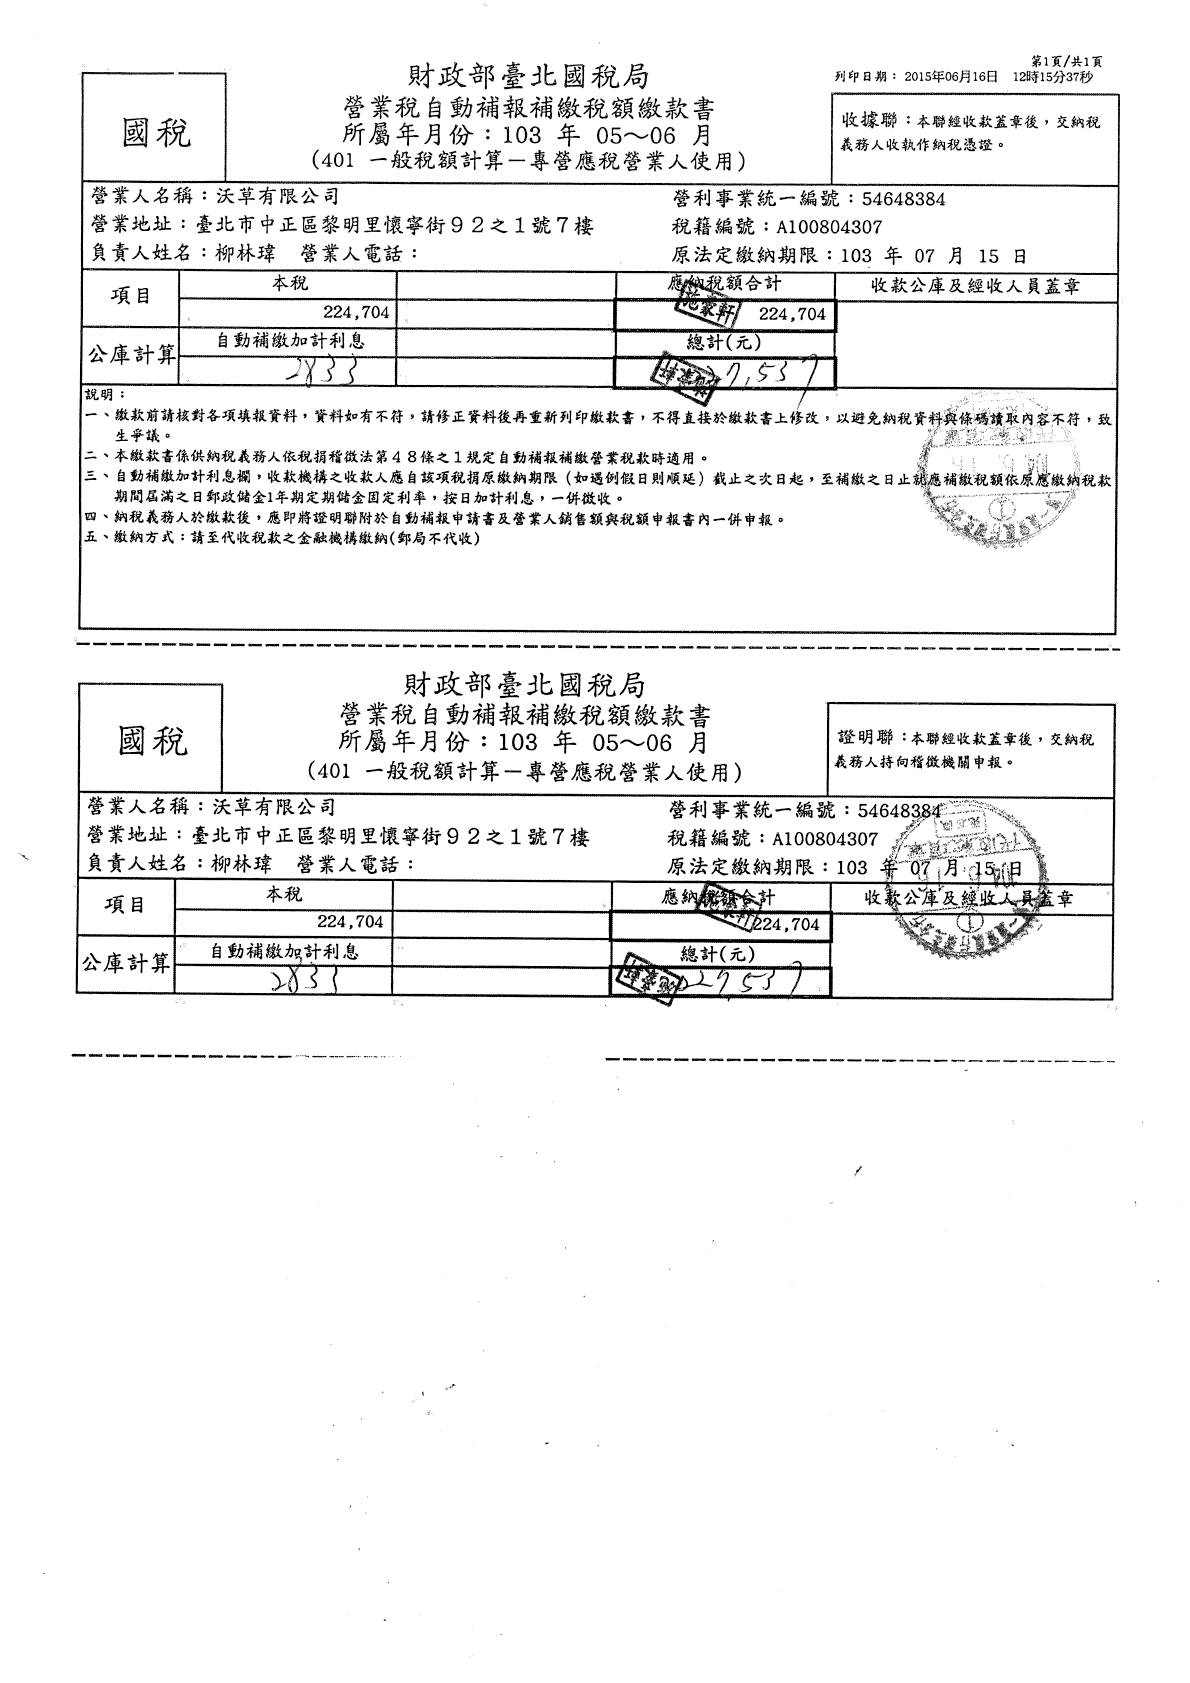 第1頁/共1頁
列印日期: 2015年06月16日 12時15分37秒
國稅
財政部臺北國稅局
營業稅自動補報補繳稅額繳款書
所屬年月份:103 年 05～06 月
(401 一般稅額計算－專營應稅營業人使用)
收據聯:本聯經收款蓋章後,交納稅
義務人收執作納稅憑證。
營業人名稱:沃草有限公司 營利事業統一編號:54648384
營業地址:臺北市中正區黎明里懷寧街92之1號7樓 稅籍編號:A100804307
負責人姓名:柳林瑋 營業人電話: 原法定繳納期限:103 年 07 月 15 日
項目 本稅 應納稅額合計 收款公庫及經收人員蓋章
224,704 224,704
公庫計算 自動補繳加計利息 總計(元)
2833 27,537
說明:
一、繳款前請核對各項填報資料,資料如有不符,請修正資料後再重新列印繳款書,不得直接於繳款書上修改,以避免納稅資料與條碼讀取內容不符,致
生爭議。
二、本繳款書係供納稅義務人依稅捐稽徵法第48條之1規定自動補報補繳營業稅款時適用。
三、自動補繳加計利息欄,收款機構之收款人應自該項稅捐原繳納期限(如遇例假日則順延)截止之次日起,至補繳之日止就應補繳稅額依原應繳納稅款
期間屆滿之日郵政儲金1年期定期儲金固定利率,按日加計利息,一併徵收。
四、納稅義務人於繳款後,應即將證明聯附於自動補報申請書及營業人銷售額與稅額申報書內一併申報。
五、繳納方式:請至代收稅款之金融機構繳納(郵局不代收)
國稅
財政部臺北國稅局
營業稅自動補報補繳稅額繳款書
所屬年月份:103 年 05～06 月
(401 一般稅額計算－專營應稅營業人使用)
證明聯:本聯經收款蓋章後,交納稅
義務人持向稽徵機關申報。
營業人名稱:沃草有限公司 營利事業統一編號:54648384
營業地址:臺北市中正區黎明里懷寧街92之1號7樓 稅籍編號:A100804307
負責人姓名:柳林瑋 營業人電話: 原法定繳納期限:103 年 07 月 15 日
項目 本稅 應納稅額合計 收款公庫及經收人員蓋章
224,704 224,704
公庫計算 自動補繳加計利息 總計(元)
2833 227,537